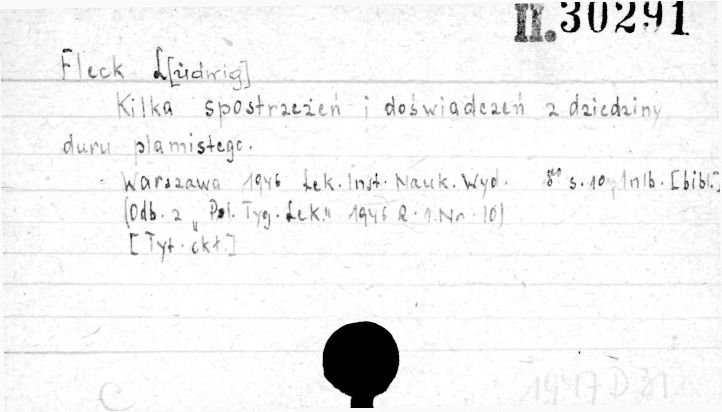 II. 30291
Fleck L[udwig]
Kilka spostrzeżeń i doświadczeń z dziedziny
duru plamistego.
Warszawa 1946 Lek. Inst. Nauk. Wyd. 8° s. 10, 1nlb. [bibl.]
(Odb. z „Pol. Tyg. Lek." 1946 R. 1. Nr. 10)
[Tyt. okł.]
C 1947 D 31